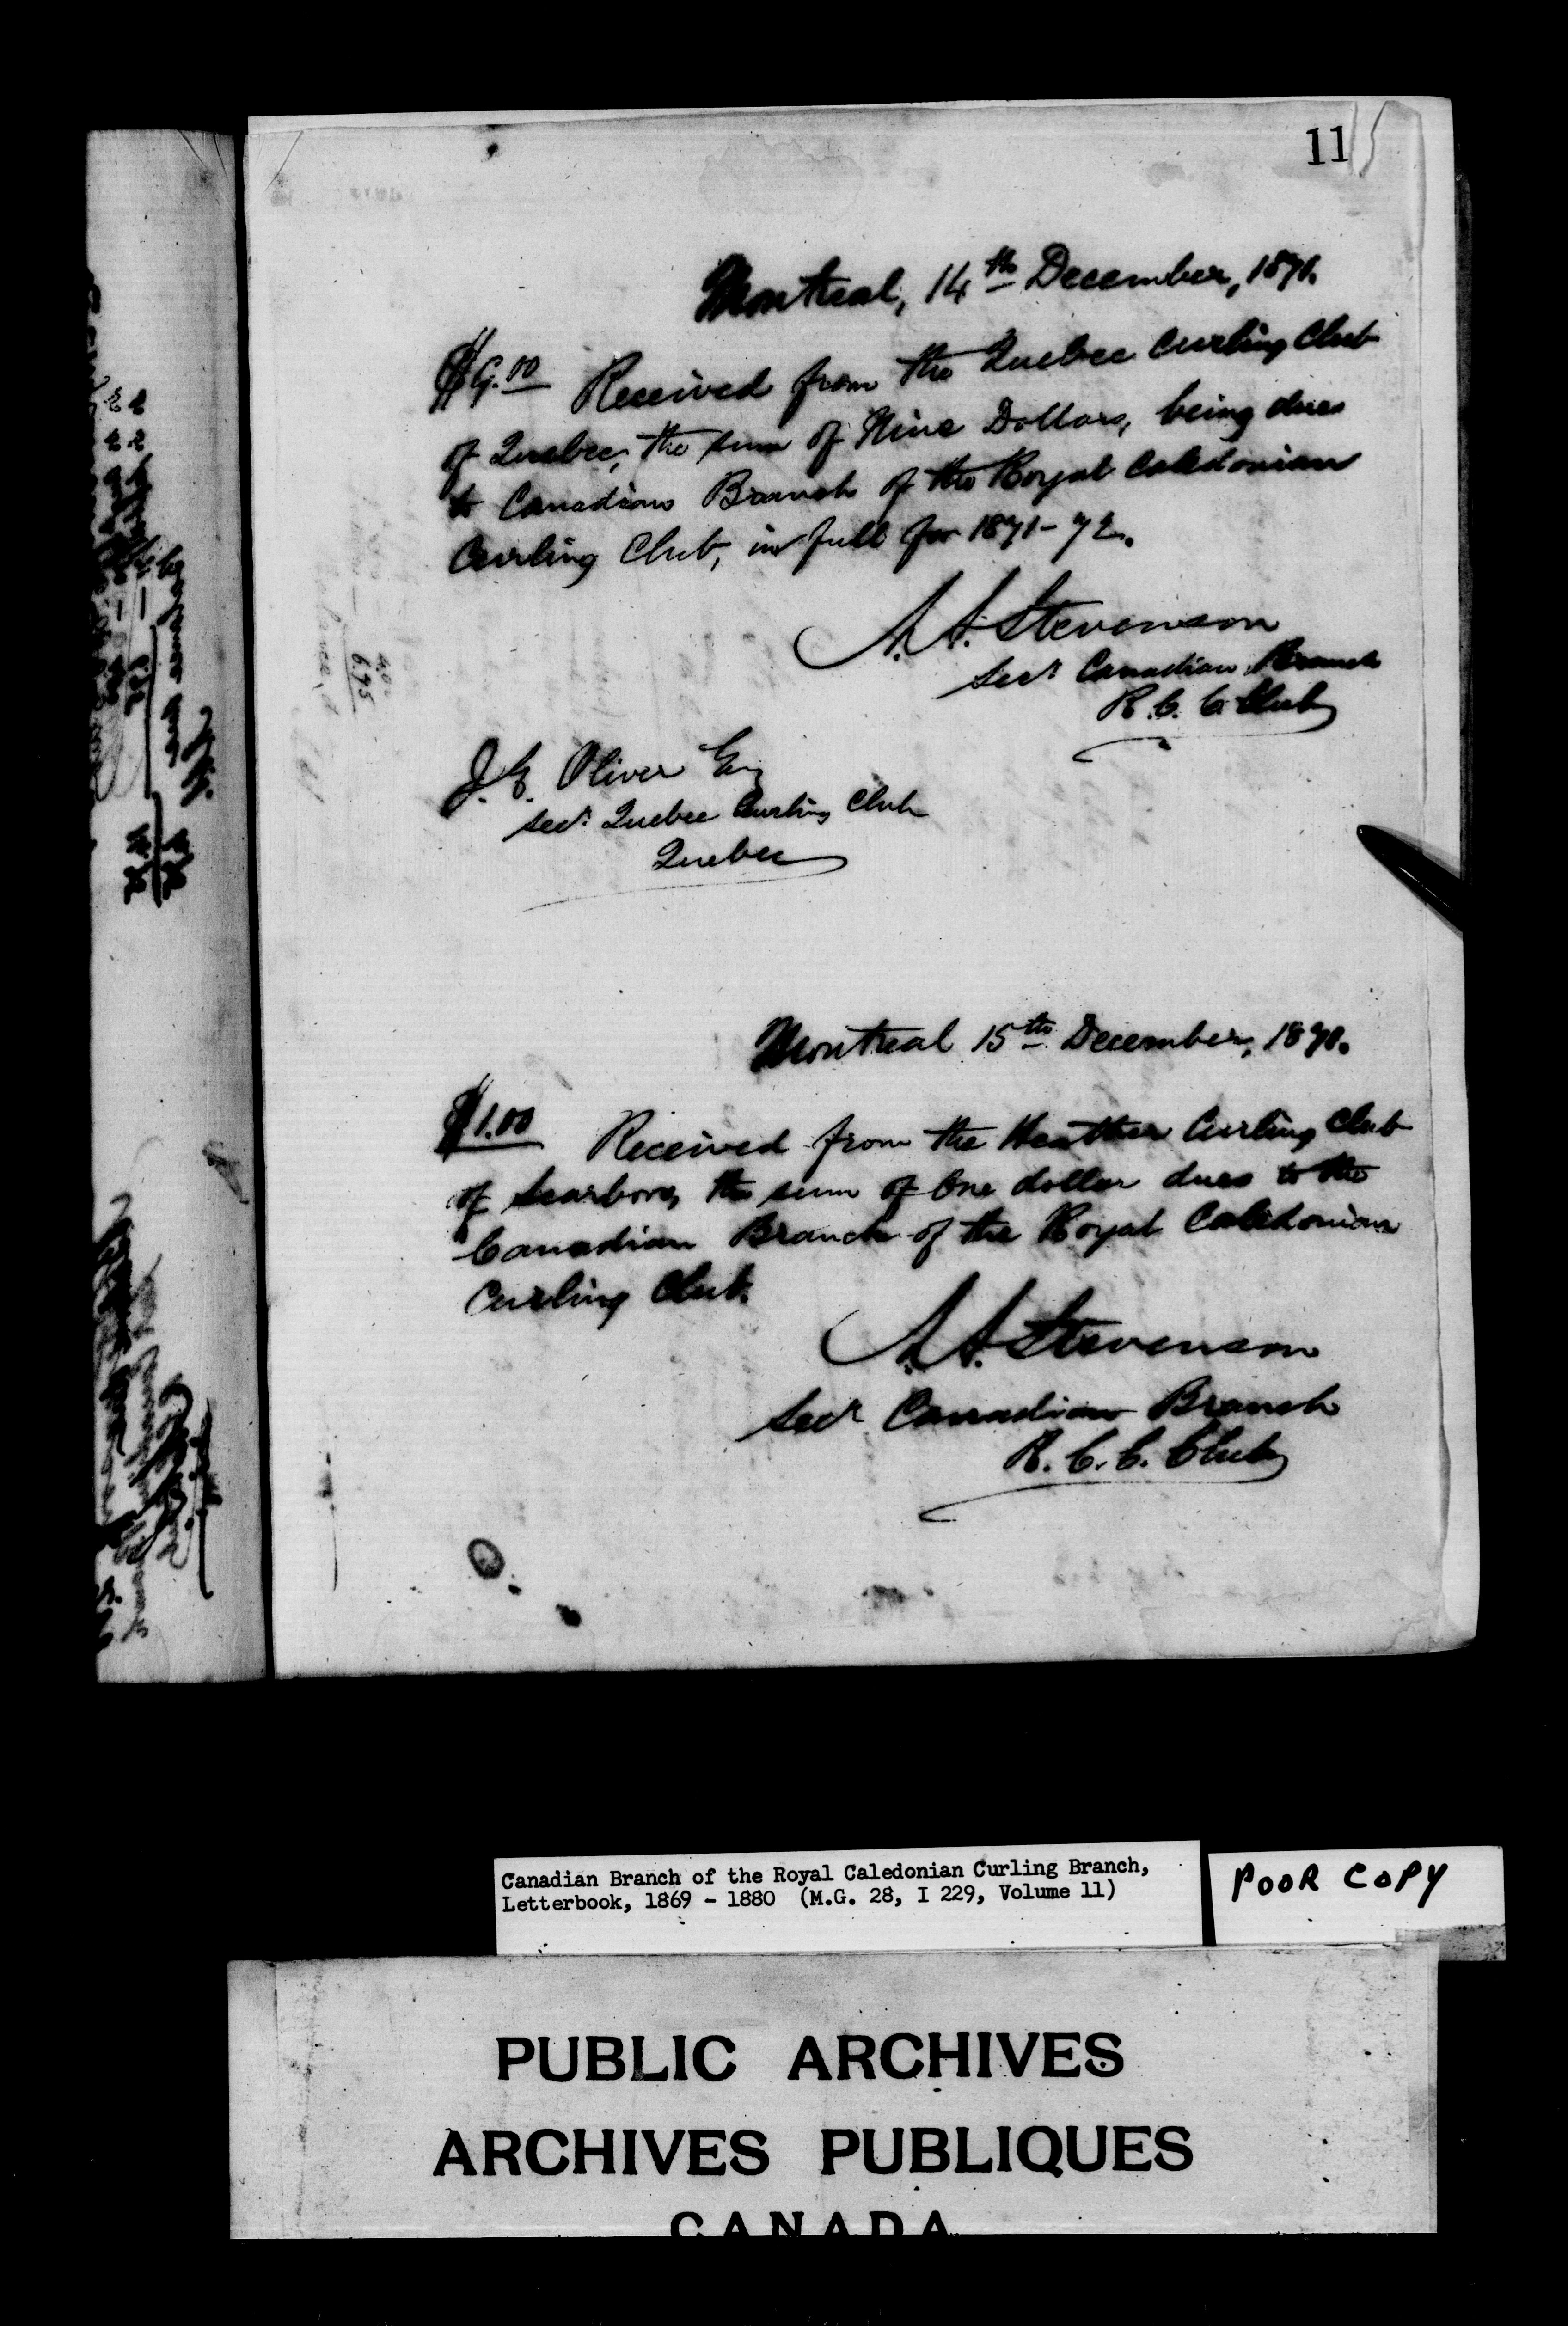 11
Montreal, 14th December, 1871.
$9.00 Received from the Quebec Curling Club
of Quebec, the sum of Nine Dollars, being dues
to Canadian Branch of the Royal Caledonian
Curling Club, in full for 1871-72.
A. A. Stevenson
Secy Canadian Branch
R. C. C. Club
J. G. Oliver Esq
Secy Quebec Curling Club
Quebec
Montreal 15th December, 1871.
$1.00 Received from the Heather Curling Club
of Scarboro, the sum of One dollar dues to the
Canadian Branch of the Royal Caledonian
Curling Club.
A. A. Stevenson
Secy Canadian Branch
R. C. C. Club
Canadian Branch of the Royal Caledonian Curling Branch,
Letterbook, 1869 - 1880 (M.G. 28, I 229, Volume 11)
POOR COPY
PUBLIC ARCHIVES
ARCHIVES PUBLIQUES
CANADA